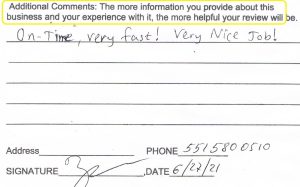 Additional Comments: The more information you provide about this
business and your experience with it, the more helpful your review will be.
On-Time, very fast! Very Nice Job!
Address
PHONE 5515800510
SIGNATURE DATE 6/27/21